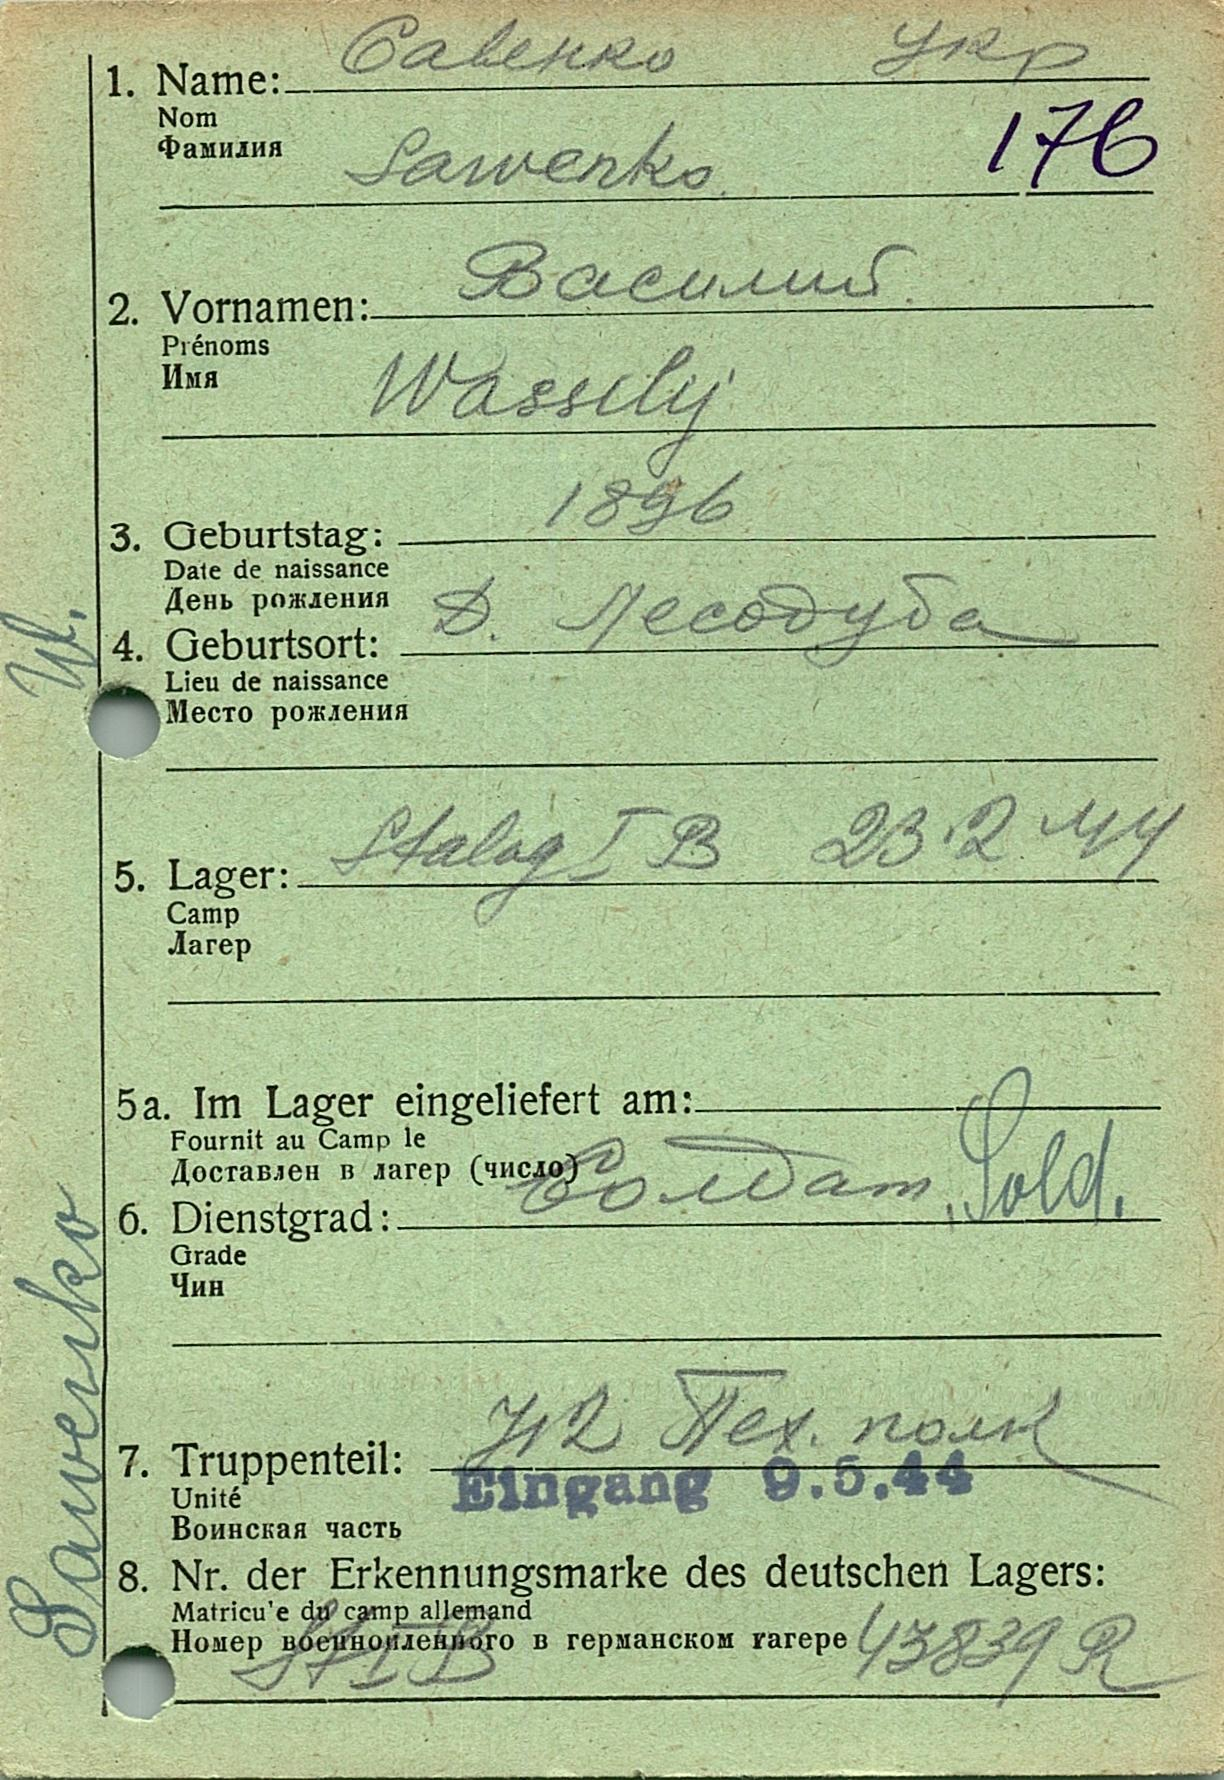 1. Name: Савенко Укр
Nom
Фамилия Sawenko 176
2. Vornamen: Василий
Prénoms
Имя Wassilij
3. Geburtstag: 1896
Date de naissance
День рождения
4. Geburtsort: Д. Лесодуба
Lieu de naissance
Место рождения
5. Lager: Stalag I B 23.2.44
Camp
Лагер
5a. Im Lager eingeliefert am:
Fournit au Camp le
Доставлен в лагер (число)
6. Dienstgrad: Солдат, Sold.
Grade
Чин
7. Truppenteil: Пех. полк
Unité Eingang 9.5.44
Воинская часть
8. Nr. der Erkennungsmarke des deutschen Lagers:
Matricu'e du camp allemand
Номер военнопленного в германском гагере
St I B 43839 R
Sawenko W.